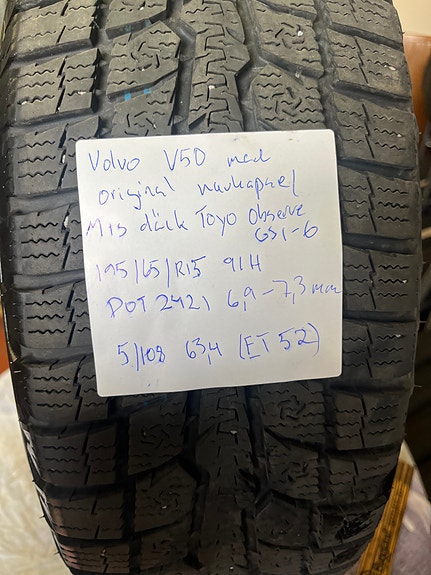 Volvo V50 med
original navkapsel
M+S däck Toyo Observe
GSi-6
195/65/R15 91H
DOT 2421 6,9-7,3 mm
5/108 63,4 (ET 52)